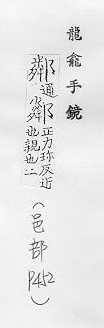 龍龕手鏡
通 正力珍反近
也親也二
(邑部
P452)